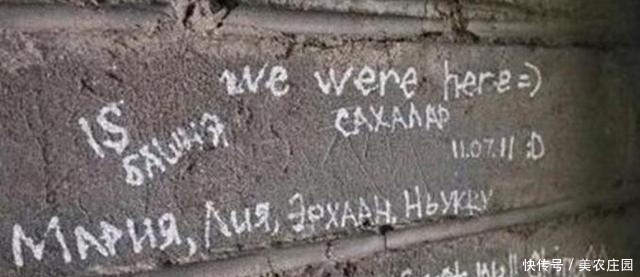 we were here =)
IS
БАШНЯ
САХАЛАР
11.07.11 :D
МАРИЯ, ЛИЯ, ЭРХААН, НЬУККУ
快传号 / 美农庄园